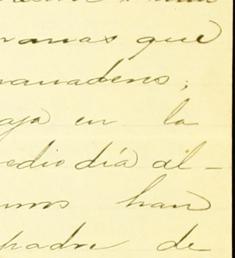 manas que
anaderos;
aja en la
edio día al-
unos han
padre de